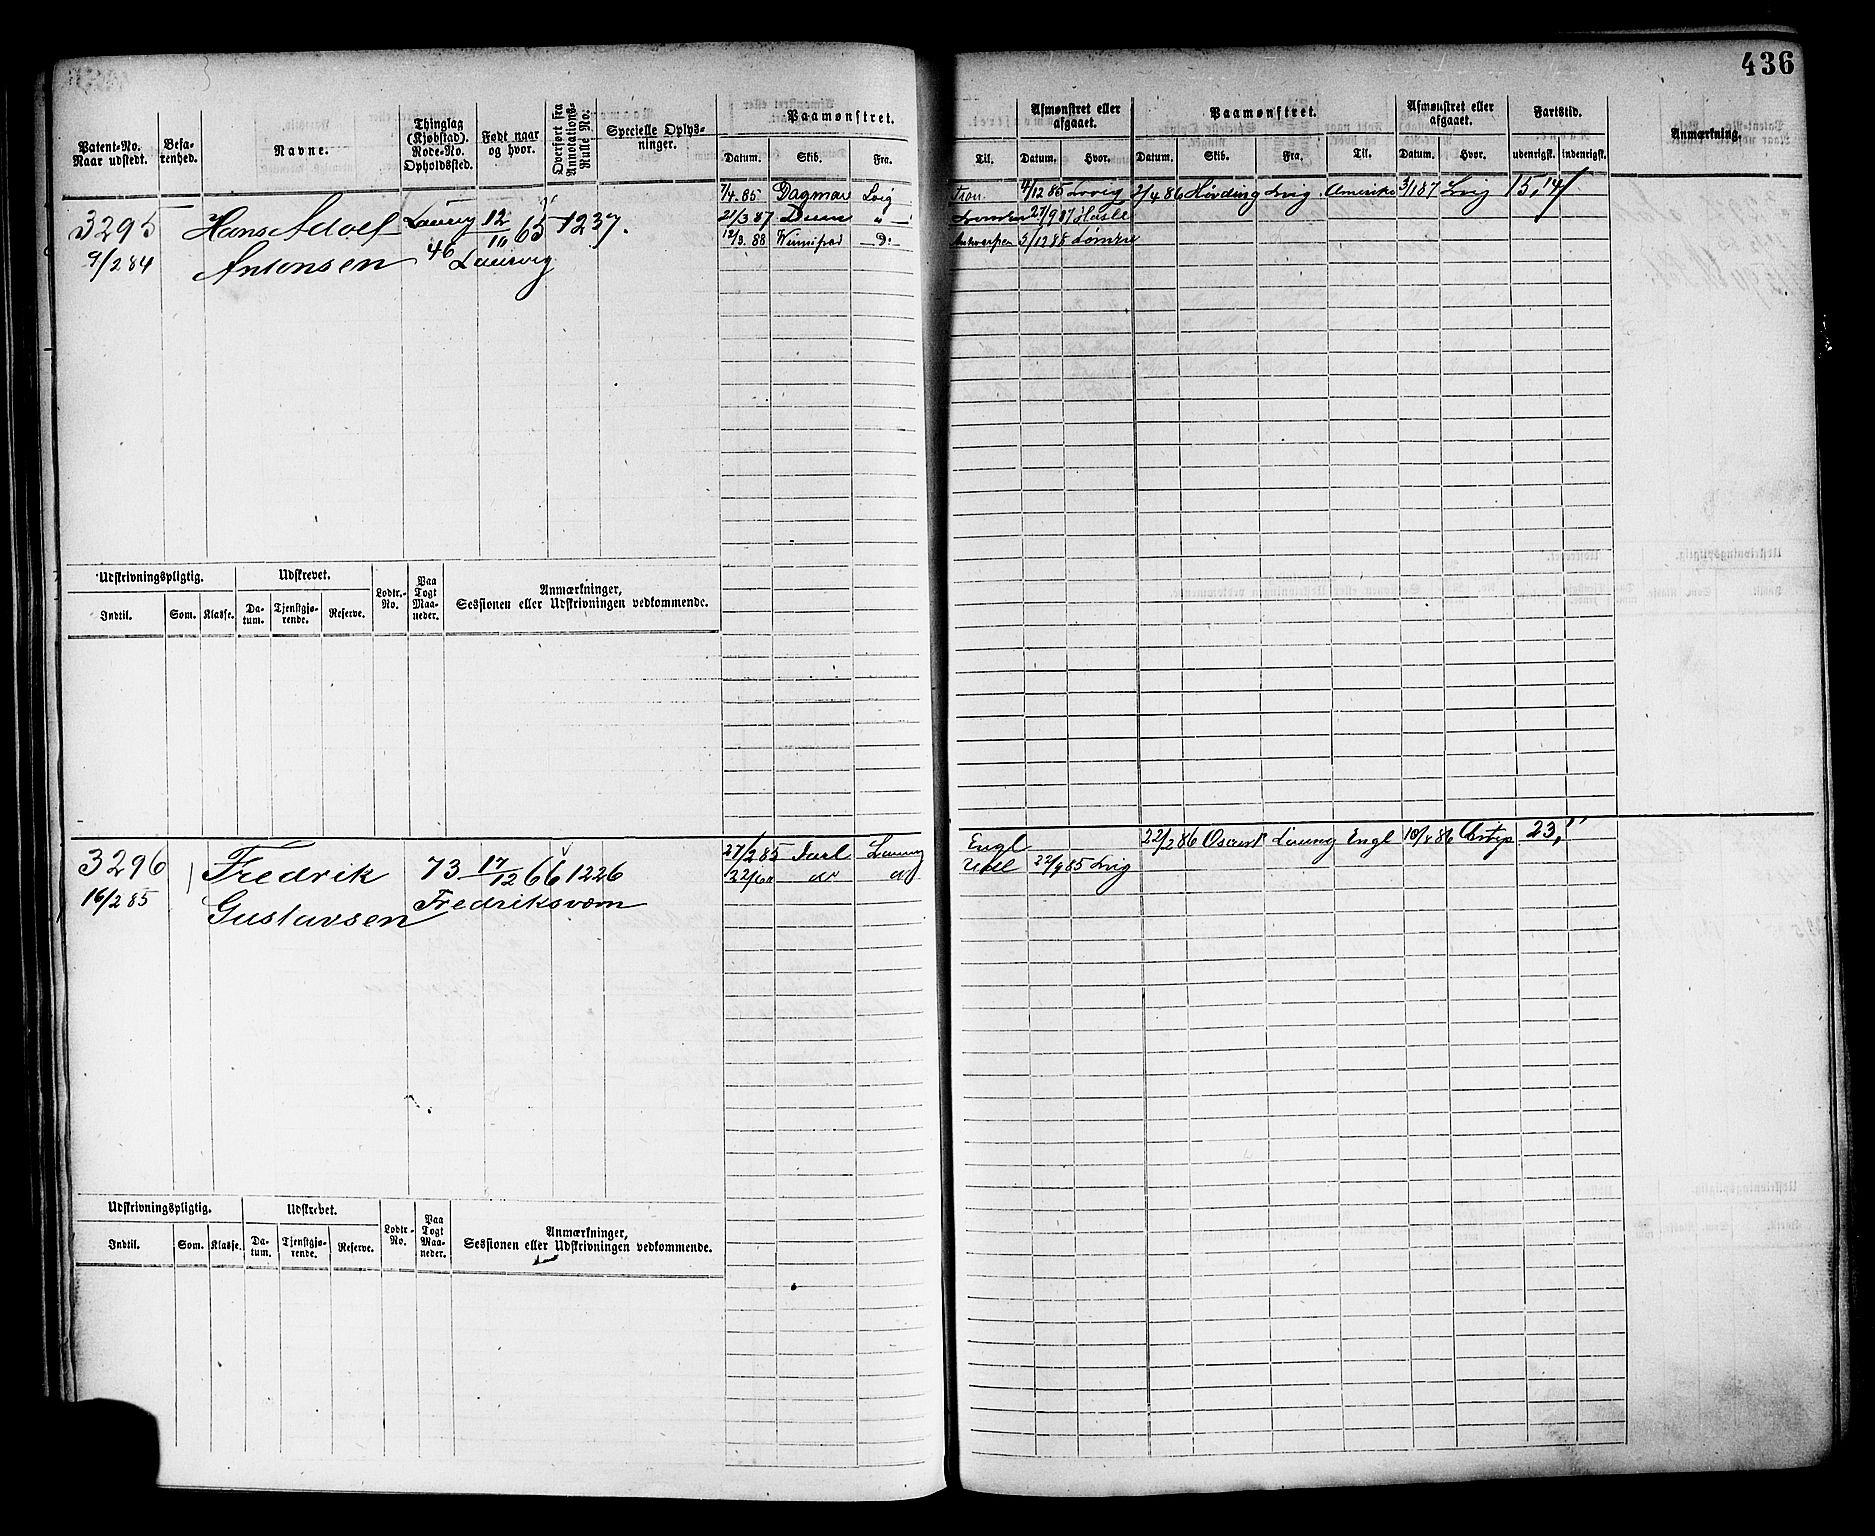 436
Patent-No. Naar udstedt.
Befarenhed.
Navne.
Thinglag (Kjøbstad). Rode-No. Opholdssted.
Født naar og hvor.
Overført fra Annotations-Rulle No:
Specielle Oplysninger.
Paamønstret.
Datum. Skib. Fra. Til.
Afmønstret eller afgaaet.
Datum. Hvor.
Paamønstret.
Datum. Skib. Fra. Til.
Afmønstret eller afgaaet.
Datum. Hvor.
Fartstid.
udenrigsk. indenrigsk.
Anmærkning.
3295
9/2 84
Hans Adolf
Antonsen
Laurvig 12/10 65 1237.
46 Laurvig
7/4. 85 Dagmar Lvig 4/12 85 Lvig 2/4 86 Høvding Lvig. Amerika 3/1 87 Lvig 15,14
21/3 87 London 27/9 87
12/3. 88 Antwerpen 5/12 88
Udskrivningspligtig.
Indtil. Som. Klasse.
Udskrevet.
Datum. Tjenstgjørende. Reserve.
Lodtr.-No.
Paa Togt Maaneder.
Anmærkninger,
Sessionen eller Udskrivningen vedkommende.
3296
16/2 85
Fredrik
Gustavsen
73 17/12 66 1226
Fredriksværn
27/2 85 Jarl Laurvig Engl 22/2 86 Laurvig Engl 10/8 86 23,
do do 22/9 85 Lvig
Udskrivningspligtig.
Indtil. Som. Klasse.
Udskrevet.
Datum. Tjenstgjørende. Reserve.
Lodtr.-No.
Paa Togt Maaneder.
Anmærkninger,
Sessionen eller Udskrivningen vedkommende.